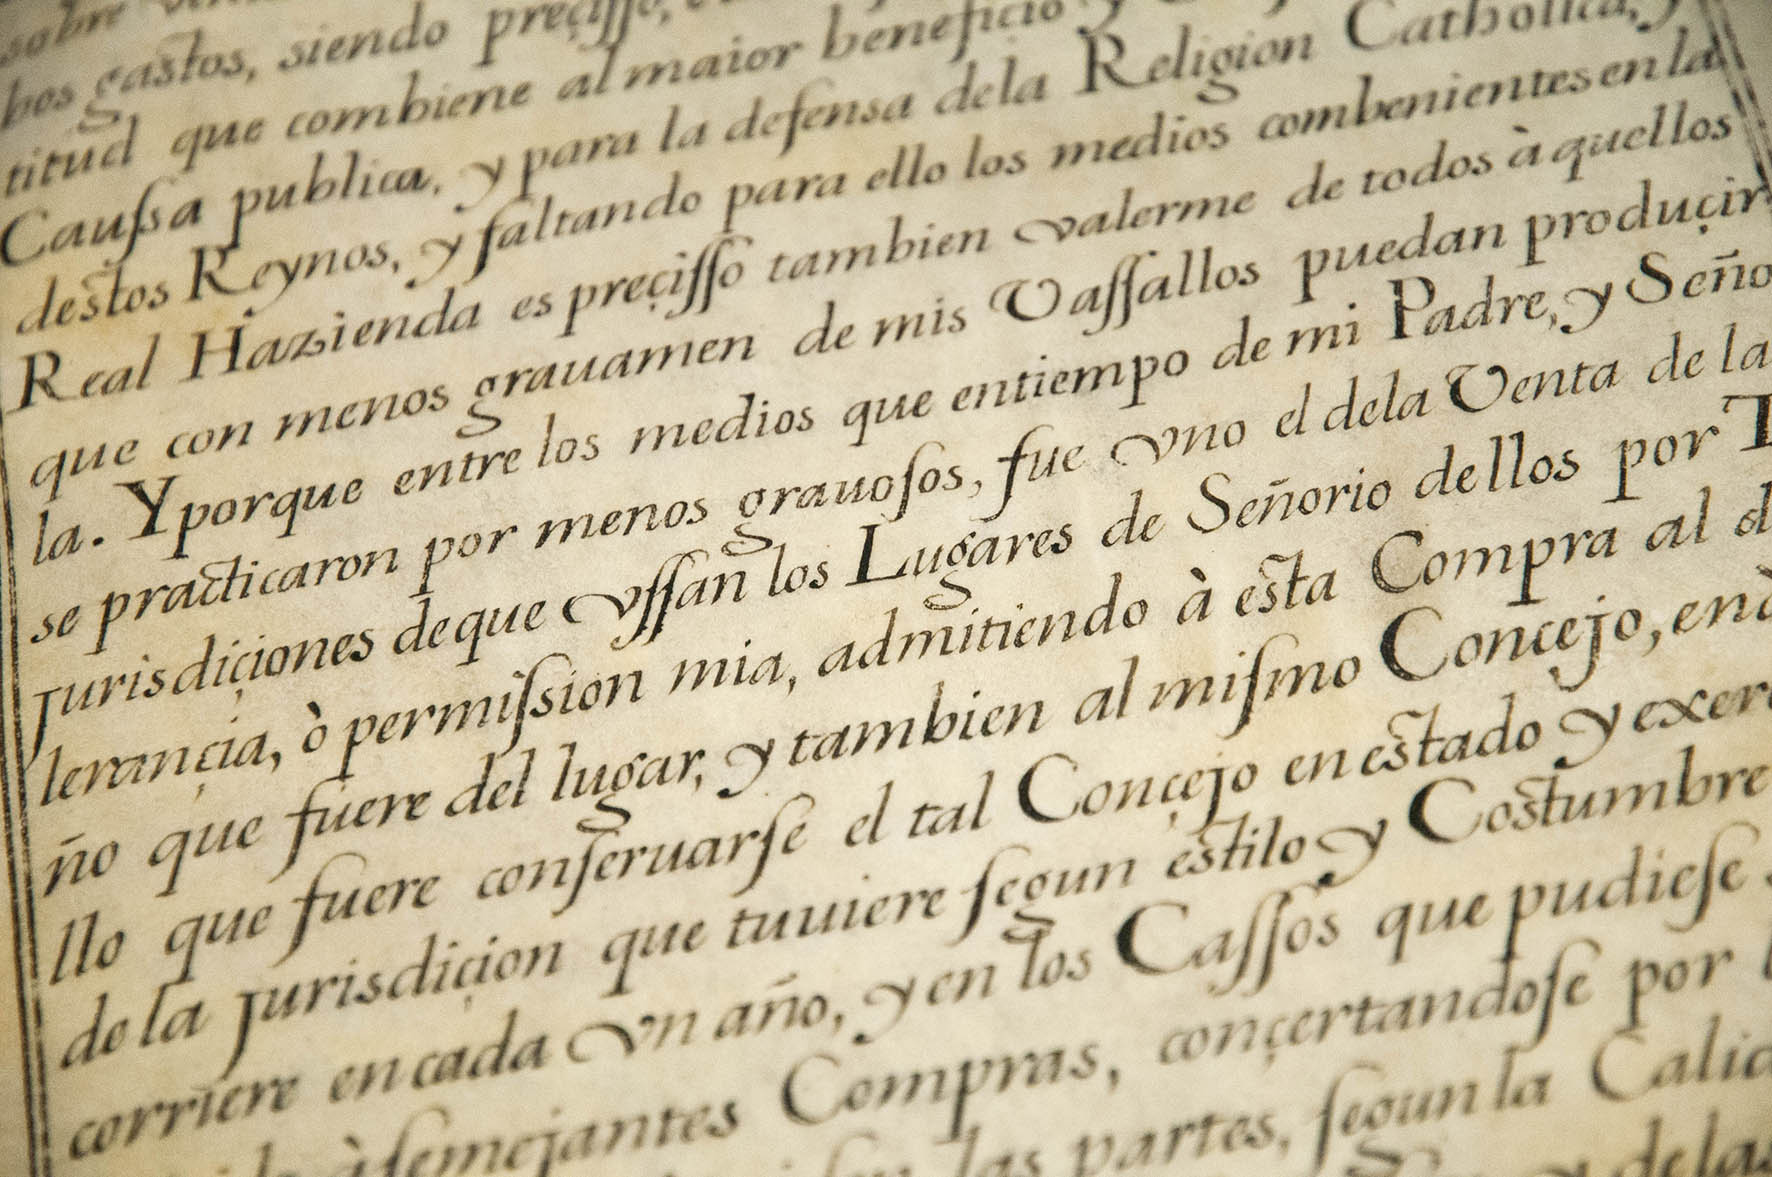 sobre
bos gastos, siendo preçisso,
titud que combiene al maior beneficio y
Caussa publica, y para la defensa dela Religion Catholica, y
destos Reynos, y faltando para ello los medios combenientes en la
Real Hazienda es preçiſſo tambien valerme de todos à quellos
que con menos grauamen de mis Vaſſallos puedan produçir
la. Y porque entre los medios que en tiempo de mi Padre, y Seño
se practicaron por menos grauoſos, fue vno el dela Venta de la
Jurisdiçiones de que vſſan los Lugares de Señorio dellos por
lerançia, ò permiſsion mia, admitiendo à esta Compra al d
ño que fuere del lugar, y tambien al miſmo Conçejo, en
llo que fuere conſeruarſe el tal Conçejo en estado y exer
de la Jurisdiçion que tuuiere ſegun estilo y Costumbre
corriere en cada vn año, y en los Caſſos que pudieſe
à ſemejantes Compras, conçertandoſe por
las partes, ſegun la Calid
y delas